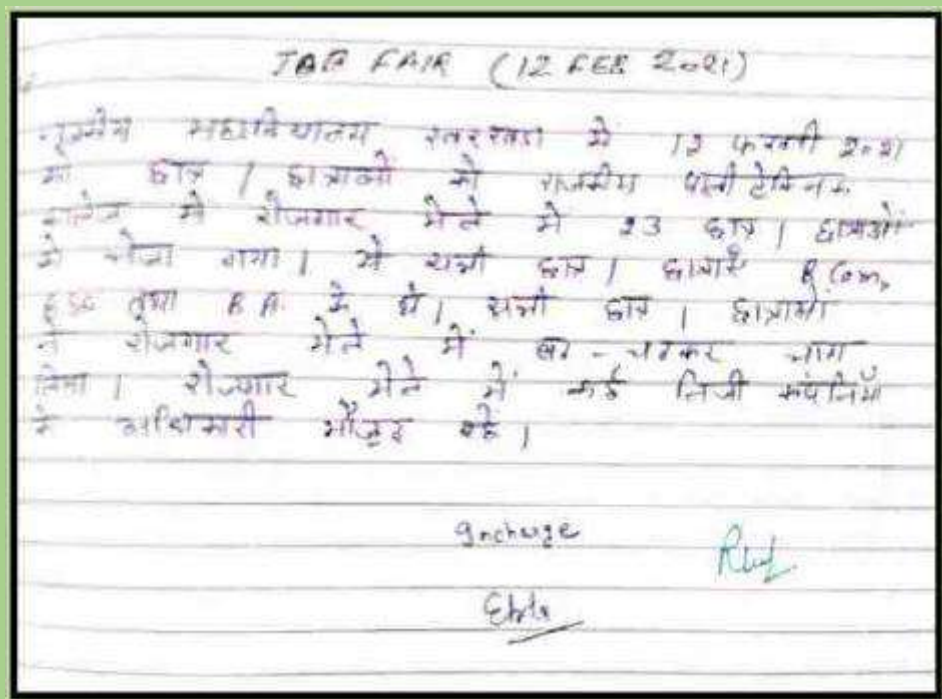 JOB FAIR (12 FEB 2021)
राजकीय महाविद्यालय खरखडा में 12 फरवरी 2021
को छात्र / छात्राओं को राजकीय पॉलीटेक्निक
कालेज में रोजगार मेले में 23 छात्र / छात्राओं
को भेजा गया । ये सभी छात्र / छात्राएँ B.Com,
BSC तथा B.A. के थे । सभी छात्र / छात्राओं
ने रोजगार मेले में बढ़-चढकर भाग
लिया । रोजगार मेले में कई निजी कंपनियाँ
के अधिकारी मौजूद रहे ।
Incharge
Ekta